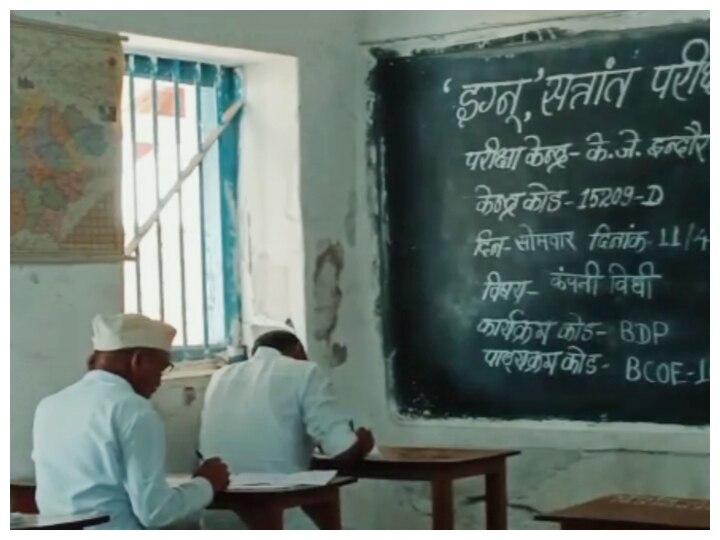 ‘इग्नू’, सत्रांत परीक्षा
परीक्षा केन्द्र- के.जे. इन्दौर
केन्द्र कोड - 15209-D
दिन- सोमवार दिनांक- 11/4
विषय- कंपनी विधी
कार्यक्रम कोड- BDP
पाठ्यक्रम कोड- BCOE-1